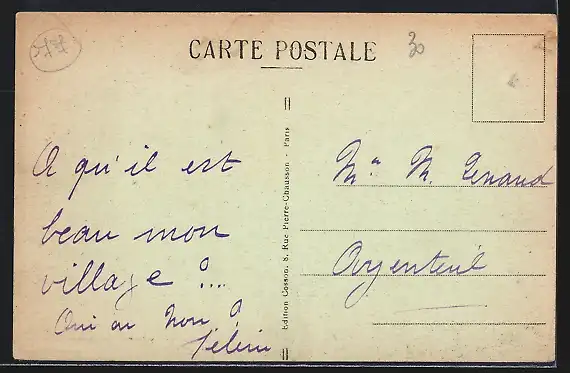 CARTE POSTALE
30
A qu'il est
beau mon
village ?...
Oui ou Non ?
Edition Cosson, 8, Rue Pierre-Chausson - Paris
M. Renaud
Argenteuil